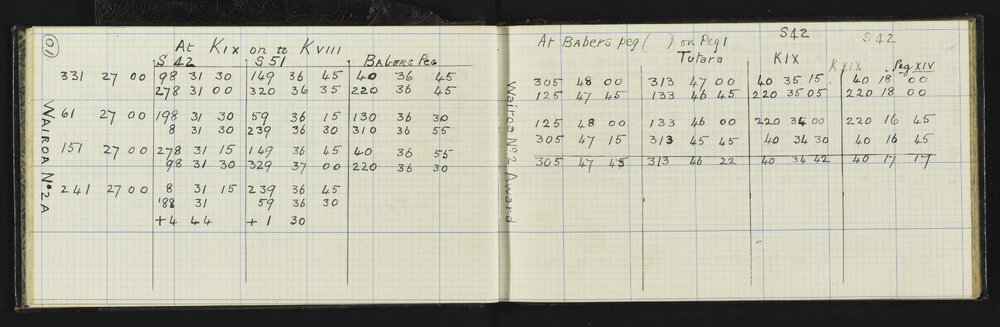 10
At KIX on to KVIII
S42 S51 BABERS PEG
331 27 00 98 31 30 149 36 45 40 36 45
278 31 00 320 36 35 220 36 45
61 27 00 198 31 30 59 36 15 130 36 30
8 31 30 239 36 30 310 36 55
151 27 00 278 31 15 149 36 45 40 36 55
98 31 30 329 37 00 220 36 30
241 27 00 8 31 15 239 36 45
188 31 59 36 30
+4 44 +1 30
WAIROA No 2A
At Babers peg ( ) on Peg 1 S42 S42
Tutara KIX KXIX Peg XIV
305 48 00 313 47 00 40 35 15 40 18 00
125 47 45 133 46 45 220 35 05 220 18 00
125 48 00 133 46 00 220 34 00 220 16 45
305 47 15 313 45 45 40 34 30 40 16 45
305 47 45 313 46 22 40 34 42 40 17 19
Wairoa No 2 Award